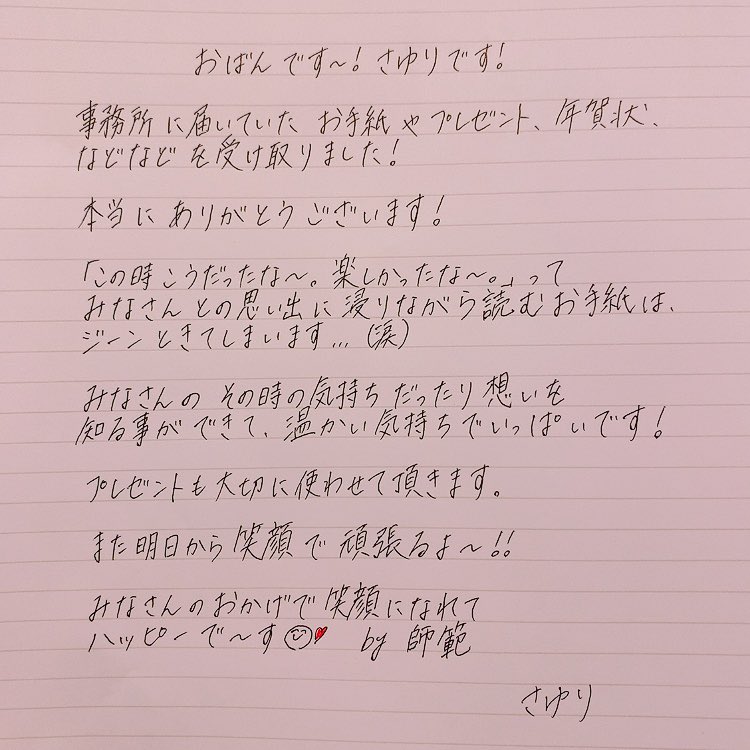 おばんです〜！さゆりです！
事務所に届いていたお手紙やプレゼント、年賀状、
などなどを受け取りました！
本当にありがとうございます！
「この時こうだったな〜。楽しかったな〜。」って
みなさんとの思い出に浸りながら読むお手紙は、
ジーンときてしまいます...(涙)
みなさんのその時の気持ちだったり想いを
知る事ができて、温かい気持ちでいっぱいです！
プレゼントも大切に使わせて頂きます。
また明日から笑顔で頑張るよ〜!!
みなさんのおかげで笑顔になれて
ハッピーで〜す by 師範
さゆり